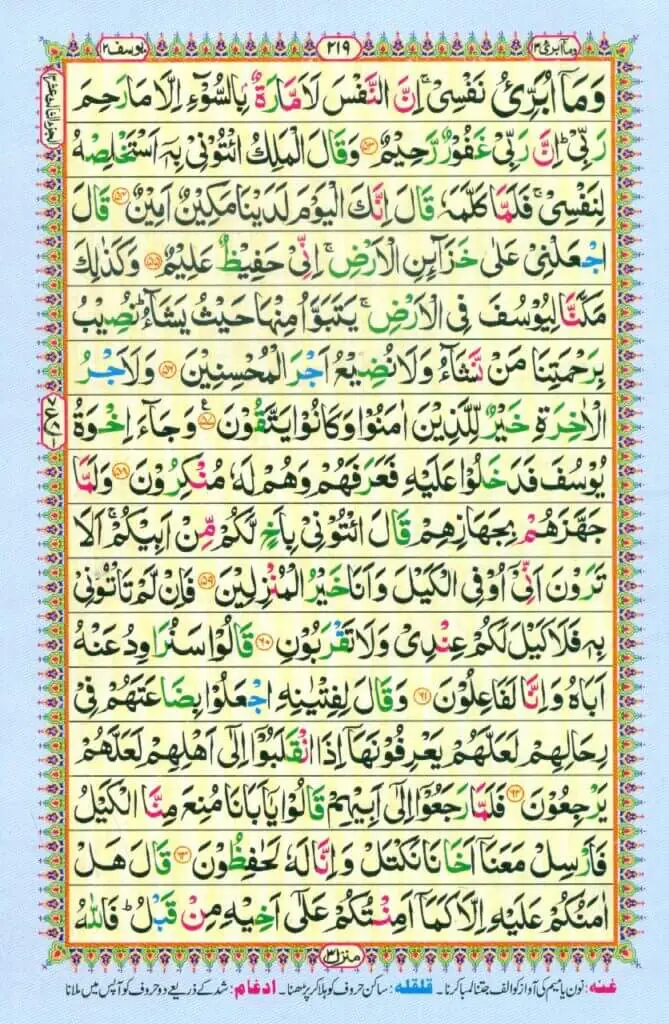 وما ابرئ ۱۳ ۲۱۹ يوسف ۱۲
وَمَاۤ اُبَرِّئُ نَفْسِیْ ۚ اِنَّ النَّفْسَ لَاَمَّارَةٌۢ بِالسُّوْٓءِ اِلَّا مَا رَحِمَ
رَبِّیْ ؕ اِنَّ رَبِّیْ غَفُوْرٌ رَّحِیْمٌ ﴿۵۳﴾ وَقَالَ الْمَلِكُ ائْتُوْنِیْ بِهٖۤ اَسْتَخْلِصْهُ
لِنَفْسِیْ ۚ فَلَمَّا كَلَّمَهٗ قَالَ اِنَّكَ الْیَوْمَ لَدَیْنَا مَكِیْنٌ اَمِیْنٌ ﴿۵۴﴾ قَالَ
اجْعَلْنِیْ عَلٰی خَزَآئِنِ الْاَرْضِ ۚ اِنِّیْ حَفِیْظٌ عَلِیْمٌ ﴿۵۵﴾ وَكَذٰلِكَ
مَكَّنَّا لِیُوْسُفَ فِی الْاَرْضِ ۚ یَتَبَوَّاُ مِنْهَا حَیْثُ یَشَآءُ ؕ نُصِیْبُ
بِرَحْمَتِنَا مَنْ نَّشَآءُ وَلَا نُضِیْعُ اَجْرَ الْمُحْسِنِیْنَ ﴿۵۶﴾ وَلَاَجْرُ
الْاٰخِرَةِ خَیْرٌ لِّلَّذِیْنَ اٰمَنُوْا وَكَانُوْا یَتَّقُوْنَ ﴿۵۷﴾ وَجَآءَ اِخْوَةُ
یُوْسُفَ فَدَخَلُوْا عَلَیْهِ فَعَرَفَهُمْ وَهُمْ لَهٗ مُنْكِرُوْنَ ﴿۵۸﴾ وَلَمَّا
جَهَّزَهُمْ بِجَهَازِهِمْ قَالَ ائْتُوْنِیْ بِاَخٍ لَّكُمْ مِّنْ اَبِیْكُمْ ۚ اَلَا
تَرَوْنَ اَنِّیْۤ اُوْفِی الْكَیْلَ وَاَنَا خَیْرُ الْمُنْزِلِیْنَ ﴿۵۹﴾ فَاِنْ لَّمْ تَاْتُوْنِیْ
بِهٖ فَلَا كَیْلَ لَكُمْ عِنْدِیْ وَلَا تَقْرَبُوْنِ ﴿۶۰﴾ قَالُوْا سَنُرَاوِدُ عَنْهُ
اَبَاهُ وَاِنَّا لَفَاعِلُوْنَ ﴿۶۱﴾ وَقَالَ لِفِتْیٰنِهِ اجْعَلُوْا بِضَاعَتَهُمْ فِیْ
رِحَالِهِمْ لَعَلَّهُمْ یَعْرِفُوْنَهَاۤ اِذَا انْقَلَبُوْۤا اِلٰۤی اَهْلِهِمْ لَعَلَّهُمْ
یَرْجِعُوْنَ ﴿۶۲﴾ فَلَمَّا رَجَعُوْۤا اِلٰۤی اَبِیْهِمْ قَالُوْا یٰۤاَبَانَا مُنِعَ مِنَّا الْكَیْلُ
فَاَرْسِلْ مَعَنَاۤ اَخَانَا نَكْتَلْ وَاِنَّا لَهٗ لَحٰفِظُوْنَ ﴿۶۳﴾ قَالَ هَلْ
اٰمَنُكُمْ عَلَیْهِ اِلَّا كَمَاۤ اَمِنْتُكُمْ عَلٰۤی اَخِیْهِ مِنْ قَبْلُ ؕ فَاللّٰهُ
منزل ۳
غنه: نون یا میم کی آواز کو الف جتنا لمبا کرنا۔ قلقله: ساکن حروف کو ہلا کر پڑھنا۔ ادغام: شد کے ذریعے دو حروف کو آپس میں ملانا